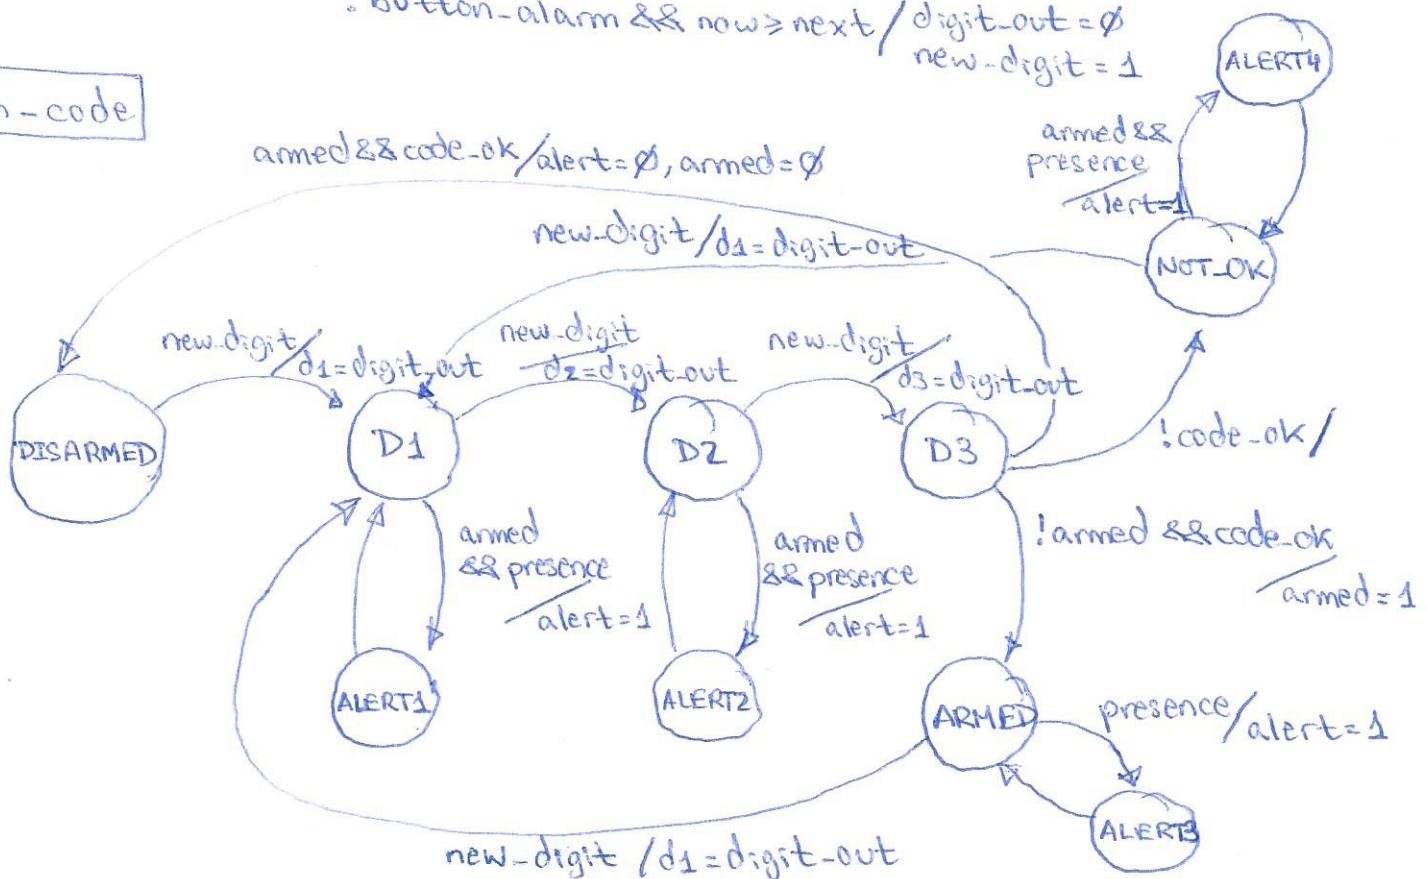 button_alarm && now ≥ next / digit_out = ∅
new_digit = 1
ALERT4
-code
armed &&
presence
/alert=1
armed && code_ok / alert=∅, armed=∅
new_digit / d1 = digit_out
NOT_OK
new_digit / d1=digit_out
new_digit
/d2=digit_out
new_digit / d3=digit_out
DISARMED
D1
D2
D3
!code_ok /
armed
&& presence
/alert=1
armed
&& presence
/alert=1
!armed && code_ok
/armed=1
ALERT1
ALERT2
ARMED
presence / alert=1
ALERT3
new_digit / d1 = digit_out